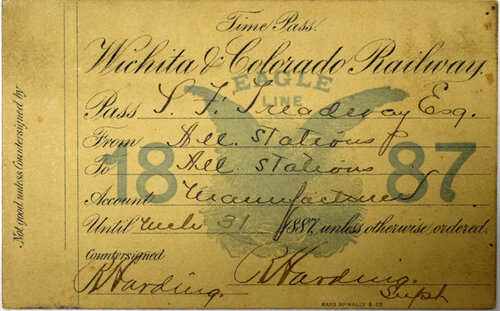 Time Pass.
Wichita & Colorado Railway
EAGLE
LINE
Pass S. F. Treadway Esq.
From All Stations
To All Stations
18 87
Account Manufacturer
Until 31 1887, unless otherwise ordered.
Countersigned
R Harding. R Harding.
Supt
RAND MCNALLY & CO
Not good unless Countersigned by